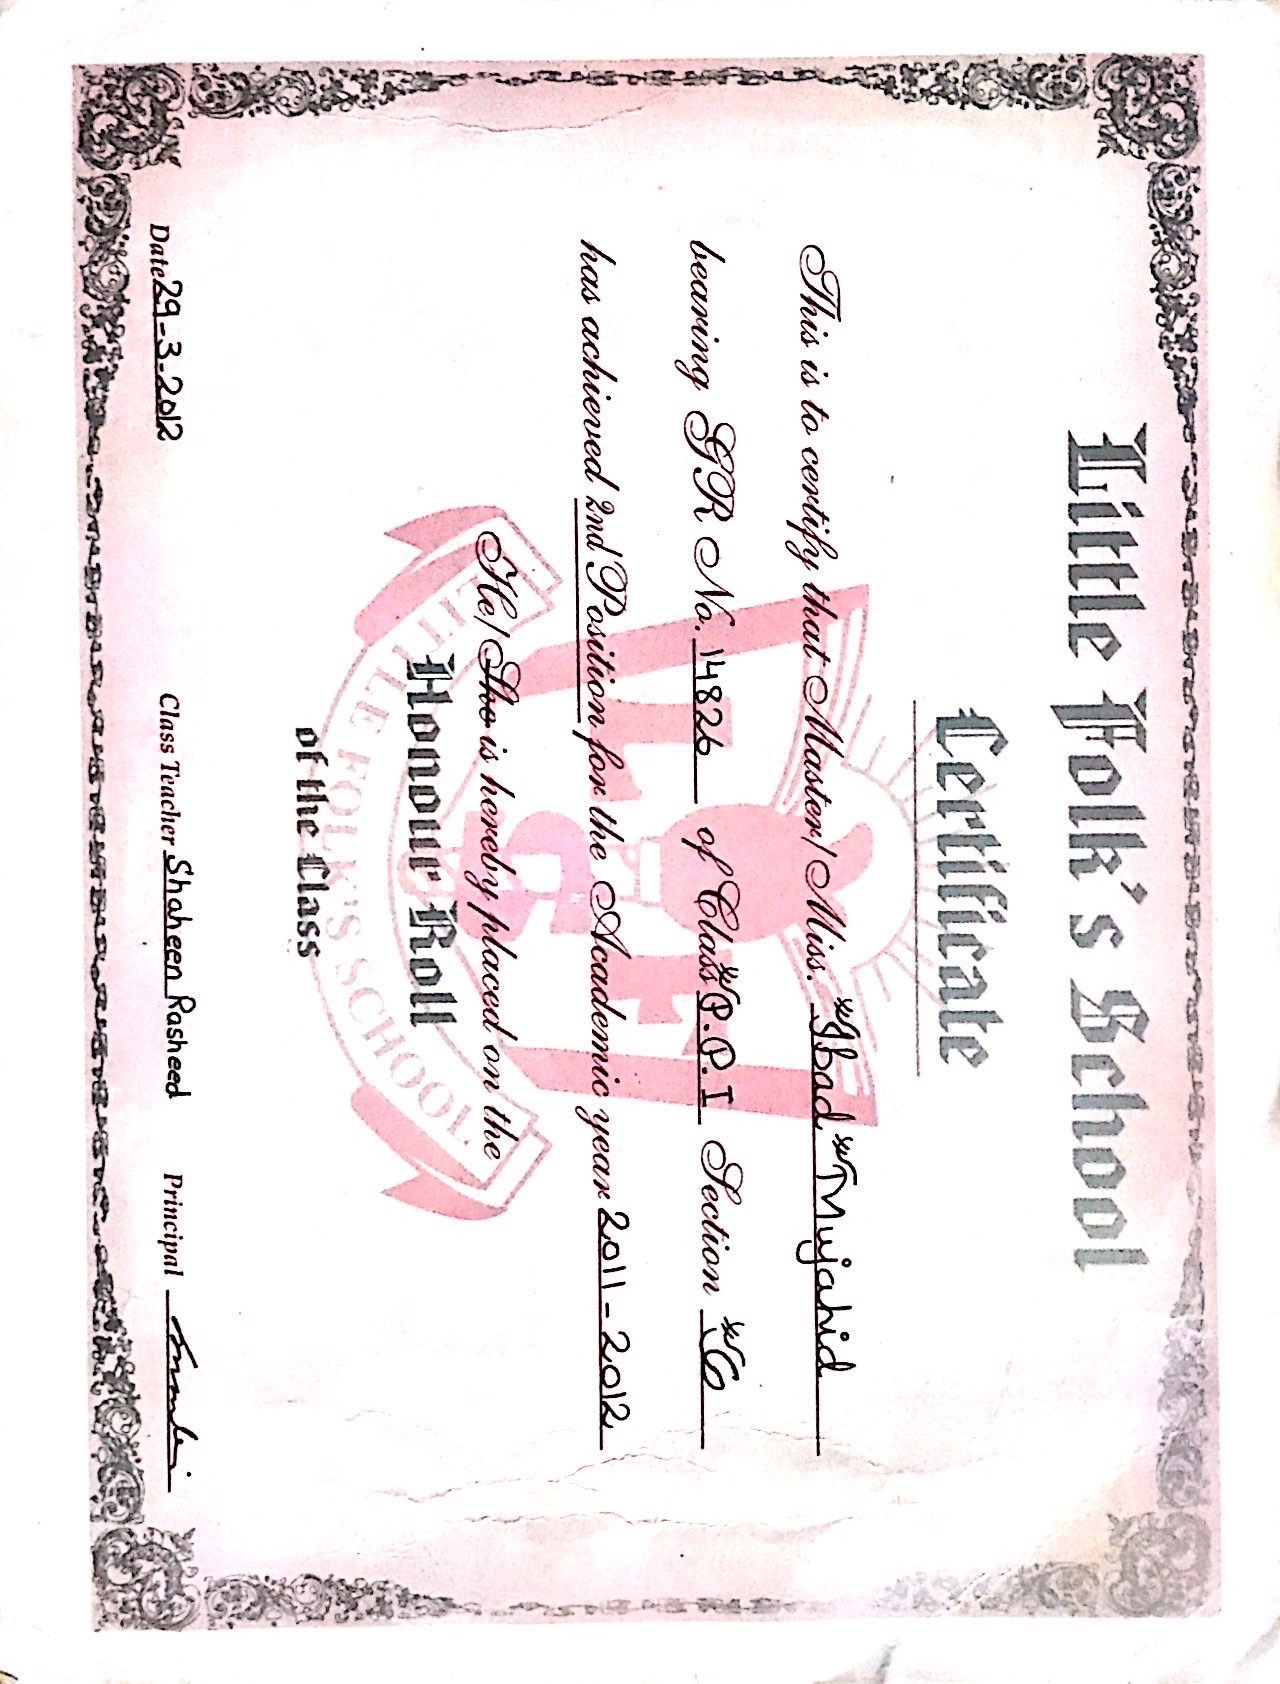 Little Folk's School
Certificate
This is to certify that Master/ Miss. Ibad Mujahid
bearing GR No. 14826 of Class P.P.I Section G
has achieved 2nd Position for the Academic year 2011-2012
He/ She is hereby placed on the
Honour Roll
of the Class
L F
S
LITTLE FOLK'S SCHOOL
Date 29-3-2012 Class Teacher Shaheen Rasheed Principal